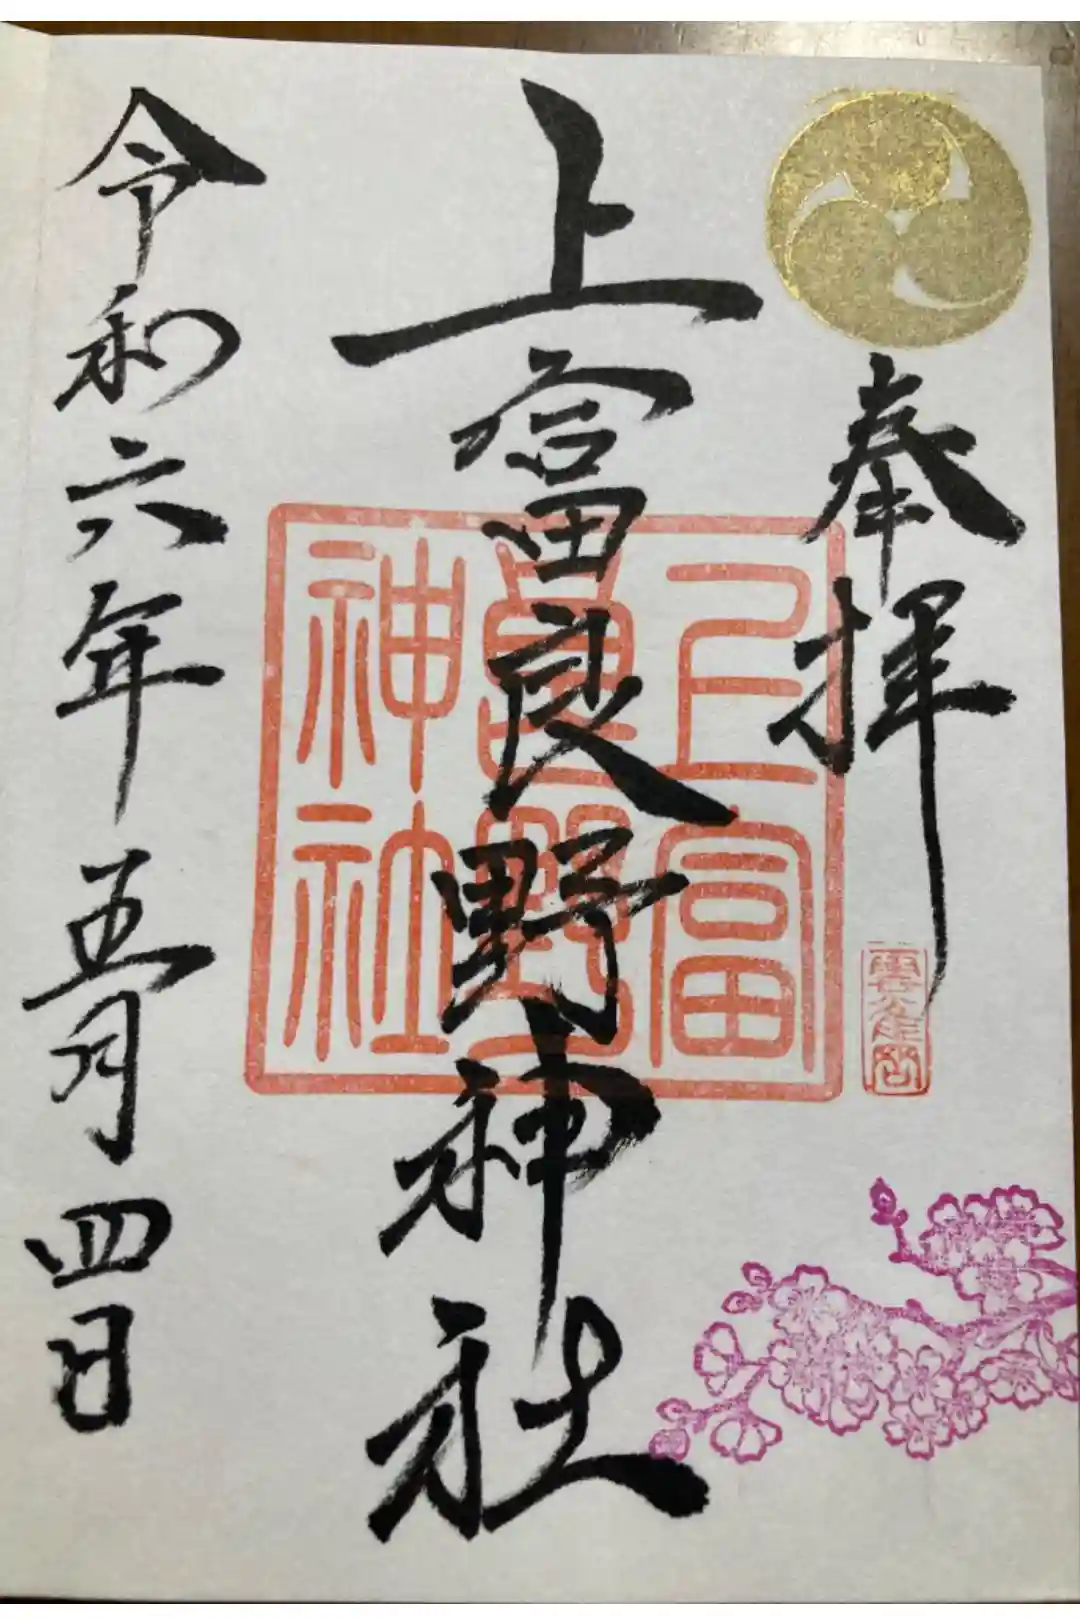 奉拝
上富良野神社
上富
良野
神社
令和六年五月四日